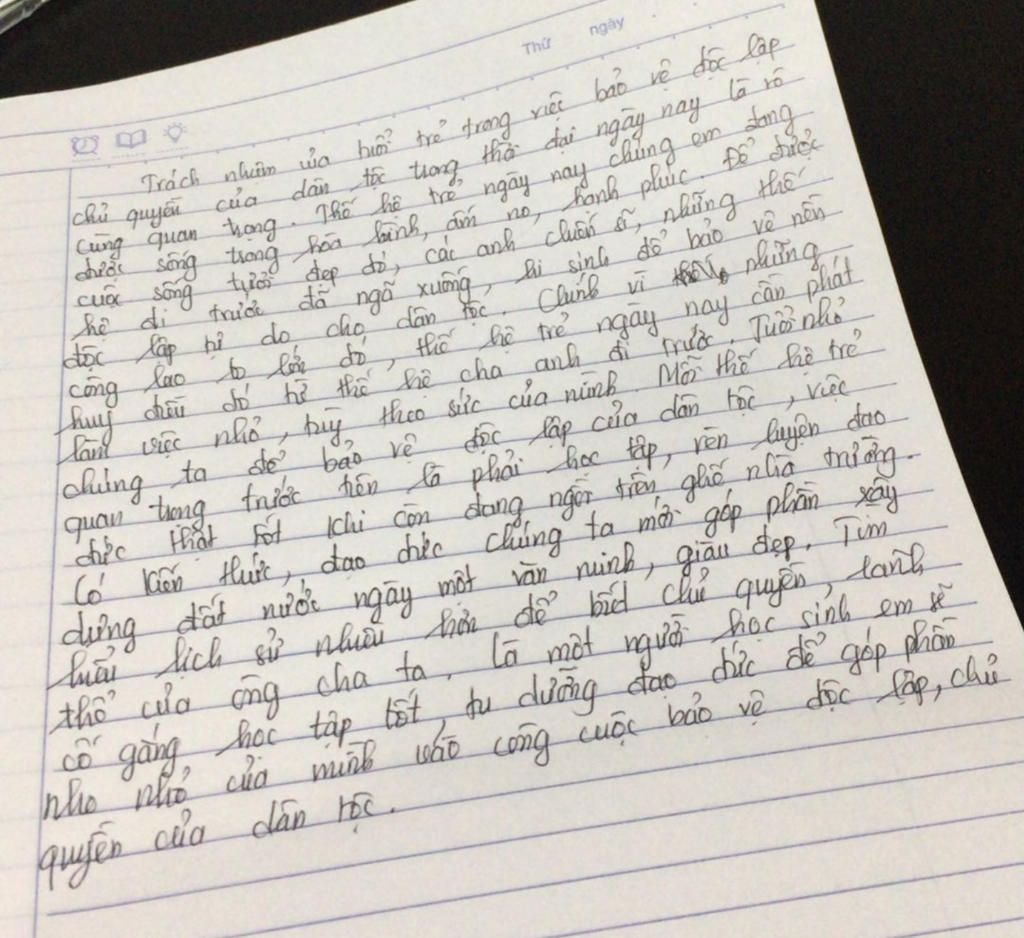 Thứ ngày
Trách nhiệm của tuổi trẻ trong việc bảo vệ độc lập
chủ quyền của dân tộc trong thời đại ngày nay là vô
cùng quan trọng. Thế hệ trẻ ngày nay chúng em đang
được sống trong hòa bình, ấm no, hạnh phúc. Để được
cuộc sống tươi đẹp đó, các anh chiến sĩ, những thế
hệ đi trước đã ngã xuống, hi sinh để bảo vệ nền
độc lập tự do cho dân tộc. Chính vì những
công lao to lớn đó, thế hệ trẻ ngày nay cần phát
huy điều đó từ thế hệ cha anh đi trước. Tuổi nhỏ
làm việc nhỏ, tùy theo sức của mình. Mỗi thế hệ trẻ
chúng ta để bảo vệ độc lập của dân tộc, việc
quan trọng trước tiên là phải học tập, rèn luyện đạo
đức thật tốt khi còn đang ngồi trên ghế nhà trường.
Có kiến thức, đạo đức chúng ta mới góp phần xây
dựng đất nước ngày một văn minh, giàu đẹp. Tìm
hiểu lịch sử nhiều hơn để biết chủ quyền, lãnh
thổ của ông cha ta. Là một người học sinh em sẽ
cố gắng học tập tốt, tu dưỡng đạo đức để góp phần
nho nhỏ của mình vào công cuộc bảo vệ độc lập, chủ
quyền của dân tộc.